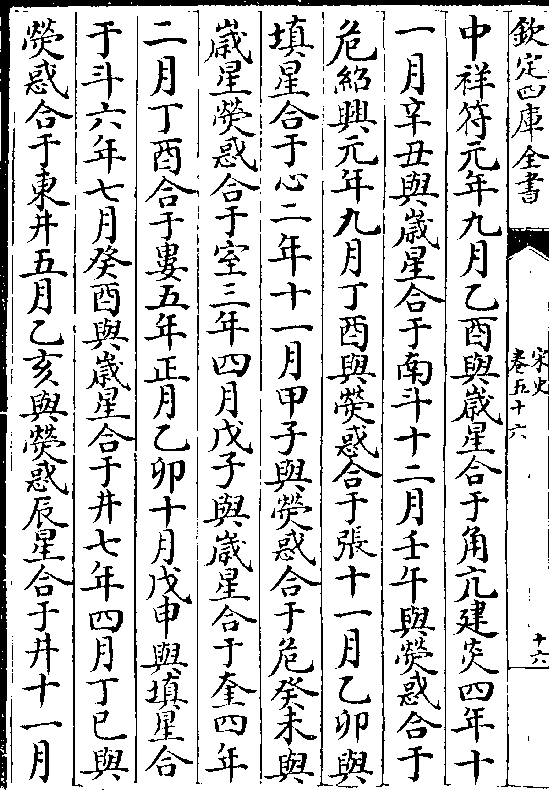 欽定四庫全書
宋史
卷五十六
十六
中祥符元年九月乙酉與歲星合于角亢建炎四年十
一月辛丑與歲星合于南斗十二月壬午與熒惑合于
危紹興元年九月丁酉與熒惑合于張十一月乙卯與
填星合于心二年十一月甲子與熒惑合于危癸未與
歲星熒惑合于室三年四月戊子與歲星合于奎四年
二月丁酉合于婁五年正月乙卯十月戊申與填星合
于斗六年七月癸酉與歲星合于井七年四月丁巳與
熒惑合于東井五月乙亥與熒惑辰星合于井十一月